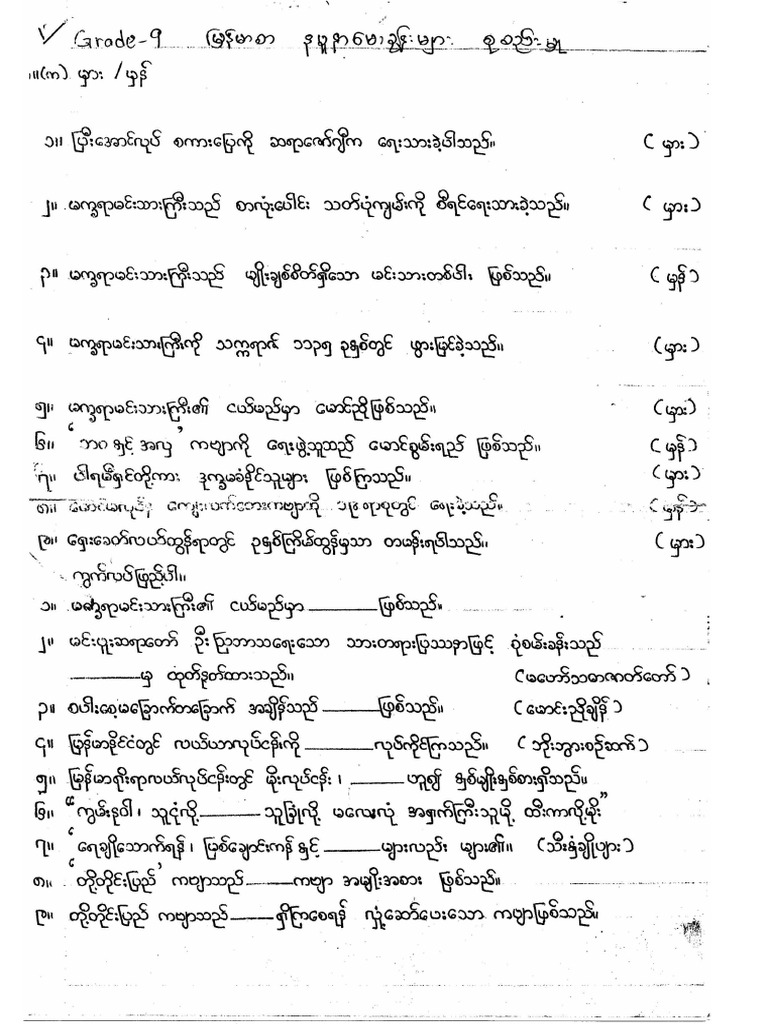 Grade-9 မြန်မာစာ နမူနာမေးခွန်းများ စုစည်းမှု
၊။(က) မှား / မှန်
၁။ ပြီးအောင်လုပ် စကားပြေကို ဆရာဇော်ဂျီက ရေးသားခဲ့ပါသည်။ (မှား)
၂။ မက္ခရာမင်းသားကြီးသည် စာလုံးပေါင်း သတ်ပုံကျမ်းကို စီရင်ရေးသားခဲ့သည်။ (မှား)
၃။ မက္ခရာမင်းသားကြီးသည် မျိုးချစ်စိတ်ရှိသော မင်းသားတစ်ပါး ဖြစ်သည်။ (မှန်)
၄။ မက္ခရာမင်းသားကြီးကို သက္ကရာဇ် ၁၁၃၅ ခုနှစ်တွင် ဖွားမြင်ခဲ့သည်။ (မှား)
၅။ မက္ခရာမင်းသားကြီး၏ ငယ်မည်မှာ မောင်ညိုဖြစ်သည်။ (မှား)
၆။ ‘ဘဝ နှင့် အလှ’ ကဗျာကို ရေးဖွဲ့သူသည် မောင်စွမ်းရည် ဖြစ်သည်။ (မှန်)
၇။ ပါရမီရှင်တို့ကား ဒုက္ခမခံနိုင်သူများ ဖြစ်ကြသည်။ (မှား)
၈။ ကျေးလက်တေးကဗျာကို ရေးခဲ့သည်။ (မှန်)
၉။ ရှေးခေတ်လယ်ထွန်ရာတွင် ခုနှစ်ကြိမ်ထွန်မှသာ တာမန်းရပါသည်။ (မှား)
ကွက်လပ်ဖြည့်ပါ။
၁။ မက္ခရာမင်းသားကြီး၏ ငယ်မည်မှာ ______ ဖြစ်သည်။
၂။ မင်းပူးဆရာတော် ဦးဩဘာသရေးသော သားတရားပြဿနာဖြင့် စုံစမ်းခန်းသည်
______ မှ ထုတ်နုတ်ထားသည်။ (မဟော်သဓာဇာတ်တော်)
၃။ စပါးစေ့မခြောက်တခြောက် အချိန်သည် ______ ဖြစ်သည်။ (မောင်းညိုချိန်)
၄။ မြန်မာနိုင်ငံတွင် လယ်ယာလုပ်ငန်းကို ______ လုပ်ကိုင်ကြသည်။ (ဘိုးဘွားစဉ်ဆက်)
၅။ မြန်မာ့ရိုးရာလယ်လုပ်ငန်းတွင် မိုးလုပ်ငန်း ၊ ______ ဟူ၍ နှစ်မျိုးနှစ်စားရှိသည်။
၆။ “ကွမ်းနုဝါ ၊ သူငုံလို့ ______ သူခြုံလို့ မလေးလုံ အရှက်ကြီးသူမို့ ထီးကာလို့မိုး”
၇။ ‘ရေချိုသောက်ရန် ၊ မြစ်ချောင်းကန် နှင့် ______ များလည်း များ၏။ (သီးနှံချိုများ)
၈။ ‘တို့တိုင်းပြည်’ ကဗျာသည် ______ ကဗျာ အမျိုးအစား ဖြစ်သည်။
၉။ ‘တို့တိုင်းပြည် ကဗျာသည် ______ ရှိကြစေရန် လှုံ့ဆော်ပေးသော ကဗျာဖြစ်သည်။